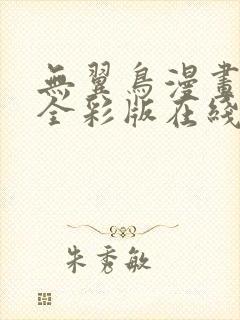 無翼鳥漫畫
全彩版在綫
朱秀敏